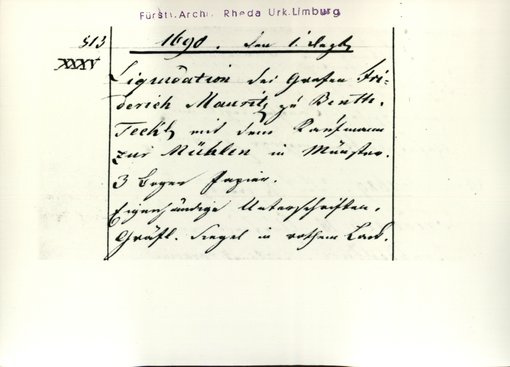 Fürstl. Archiv Rheda Urk. Limburg
513
XXXV
1690. den 1. Sept.
Liquidation des Grafen Fri-
derich Mauritz zu Benth.
Teckl. mit dem Kaufmann
zur Mühlen in Münster.
3 Bogen Papier.
Eigenhändige Unterschriften.
Gräfl. Siegel in rothem Lack.